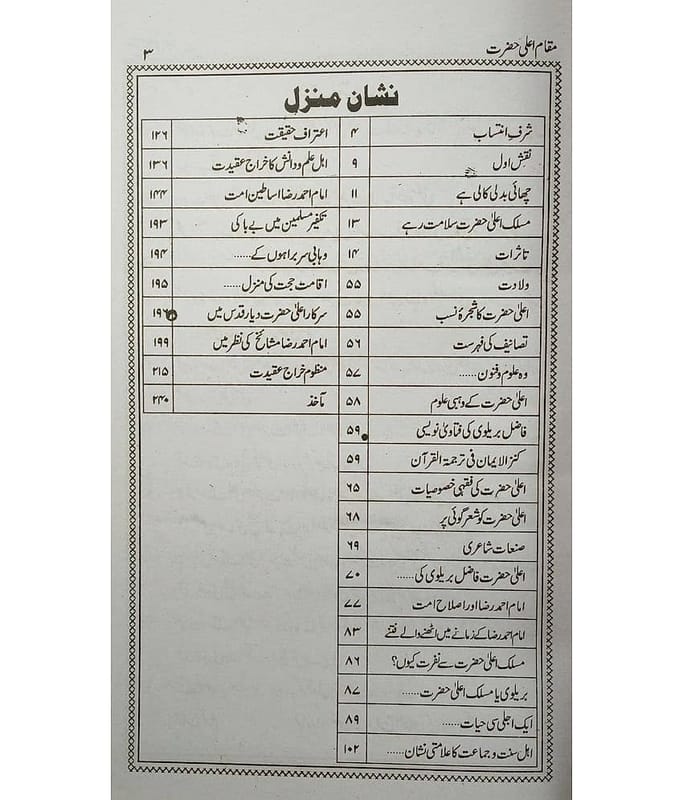 مقام اعلیٰ حضرت ۳
نشان منزل
شرف انتساب ۴
نقش اول ۹
چھائی بدلی کالی ہے ۱۱
مسلک اعلیٰ حضرت سلامت رہے ۱۳
تاثرات ۱۴
ولادت ۵۵
اعلیٰ حضرت کا شجرۂ نسب ۵۵
تصانیف کی فہرست ۵۶
وہ علوم وفنون...... ۵۷
اعلیٰ حضرت کے وہبی علوم ۵۸
فاضل بریلوی کی فتاویٰ نویسی ۵۹
کنز الایمان فی ترجمۃ القرآن ۵۹
اعلیٰ حضرت کی فقہی خصوصیات ۶۵
اعلیٰ حضرت کو شعر گوئی پر ۶۸
صنعات شاعری ۶۹
اعلیٰ حضرت فاضل بریلوی کی...... ۷۰
امام احمد رضا اور اصلاح امت ۷۷
امام احمد رضا کے زمانے میں اٹھنے والے فتنے ۸۳
مسلک اعلیٰ حضرت سے نفرت کیوں؟ ۸۶
بریلوی یا مسلک اعلیٰ حضرت...... ۸۷
ایک اجلی سی حیات...... ۸۹
اہل سنت و جماعت کا علامتی نشان...... ۱۰۲
اعتراف حقیقت ۱۲۶
اہل علم ودانش کا خراج عقیدت ۱۳۶
امام احمد رضا اساطین امت ۱۴۴
تکفیر مسلمین میں بے باکی ۱۹۳
وہابی سربراہوں کے...... ۱۹۴
اقامت حجت کی منزل...... ۱۹۵
سرکار اعلیٰ حضرت دیار قدس میں ۱۹۶
امام احمد رضا مشائخ کی نظر میں ۱۹۹
منظوم خراج عقیدت ۲۱۵
مآخذ ۲۴۰